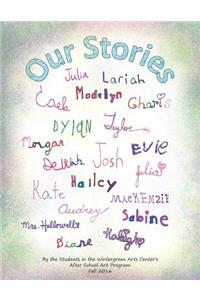 Our Stories
Julia Lariah
Madelyn
Caeli Charis
DYlAN Taylor
Morgan EViE
Delilah Josh Julia
Hailey
Kate MACKENZIE
Audrey
Sabine
Mrs. Hallowell
Diane Kaleigh
By the Students in the Wintergreen Arts Center's
After School Art Program
Fall 2016